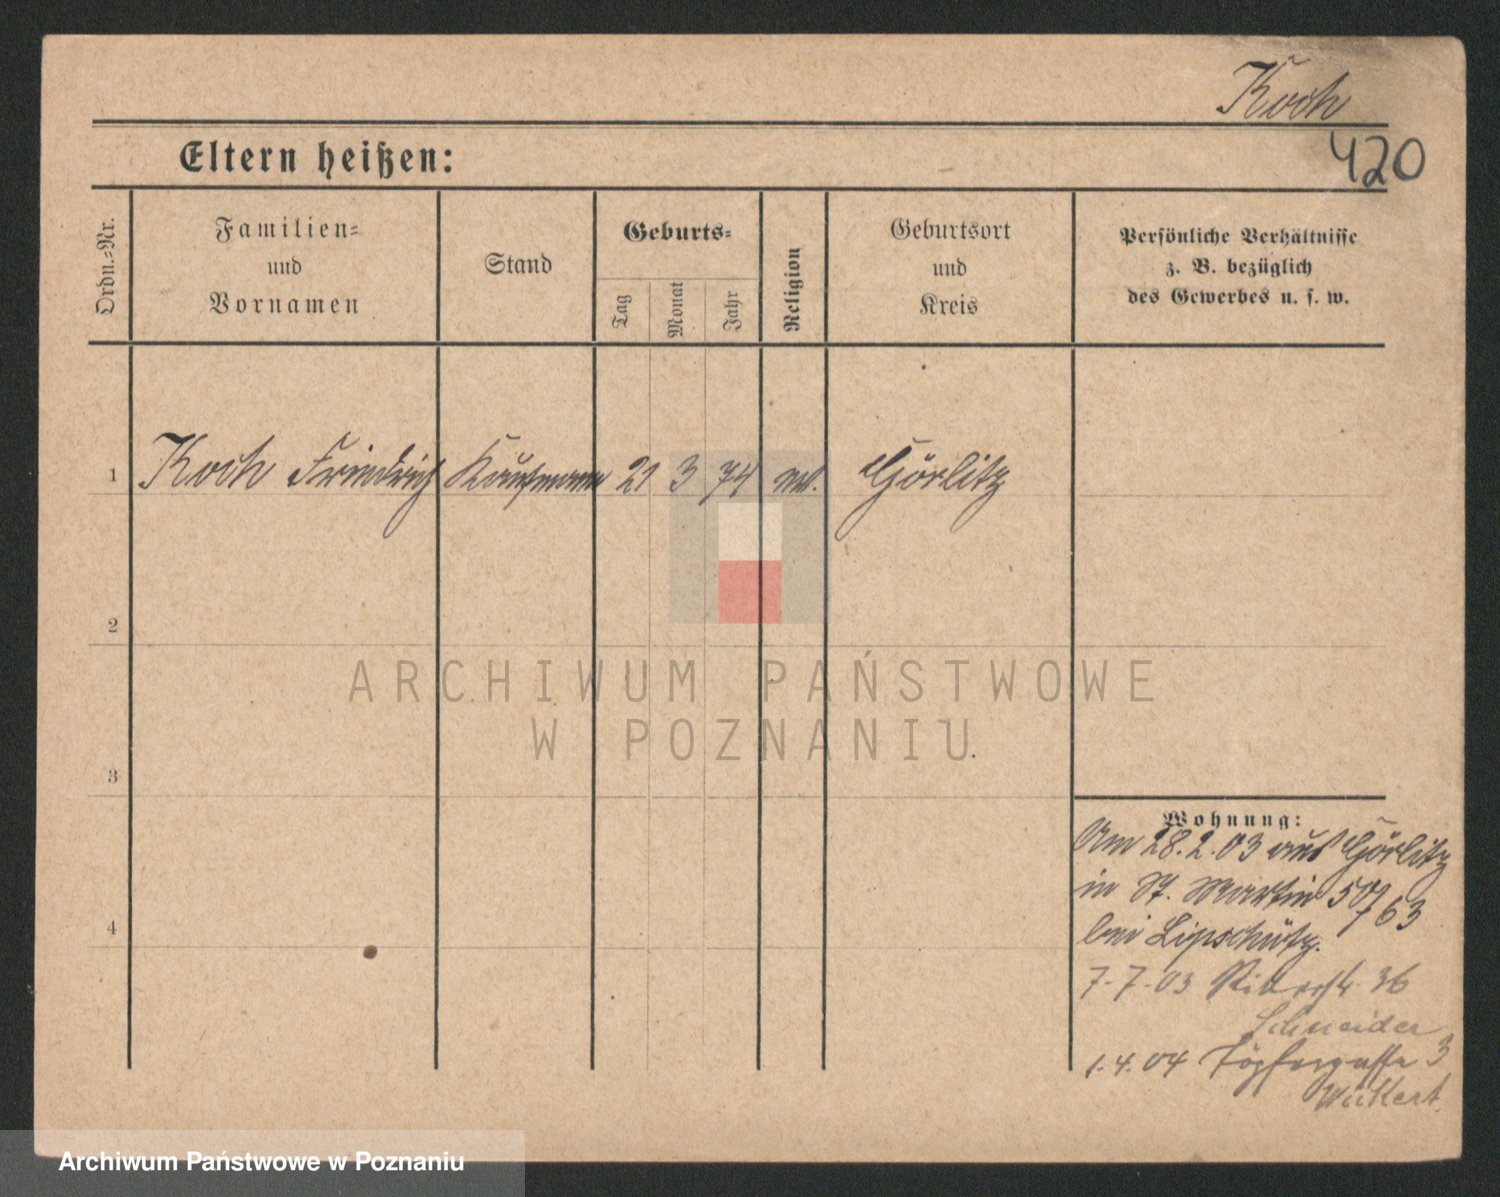 Koch
420
Eltern heißen:
Ordn.-Nr.
Familien-
und
Vornamen
Stand
Geburts-
Tag
Monat
Jahr
Religion
Geburtsort
und
Kreis
Persönliche Verhältnisse
z. B. bezüglich
des Gewerbes u. s. w.
1 Koch Friedrich Kaufmann 21 3 74 Görlitz
2
3
4
Wohnung:
Am 28.2.03 aus Görlitz
in St. Martin 50/63
bei Lipschütz.
7.7.03 Ritterstr. 36
Schneider
1.4.04 Töpfergasse 3
ARCHIWUM PAŃSTWOWE
W POZNANIU
Archiwum Państwowe w Poznaniu